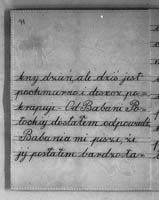 kny dzień, ale dziś jest
pochmurno i deszcz po=
krapuje. Od Babuni Po=
tockiej dostałem odpowiedź.
Babunia mi pisze, że
jej posłałem bardzo ła=